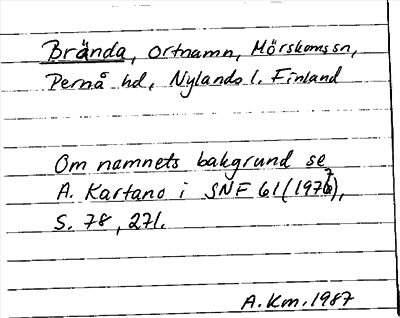 Brända, ortnamn, Mörskomssn,
Pernå hd, Nylands l. Finland
Om namnets bakgrund se
A. Kartano i SNF 61 (1977),
S. 78, 271.
A.Km.1987